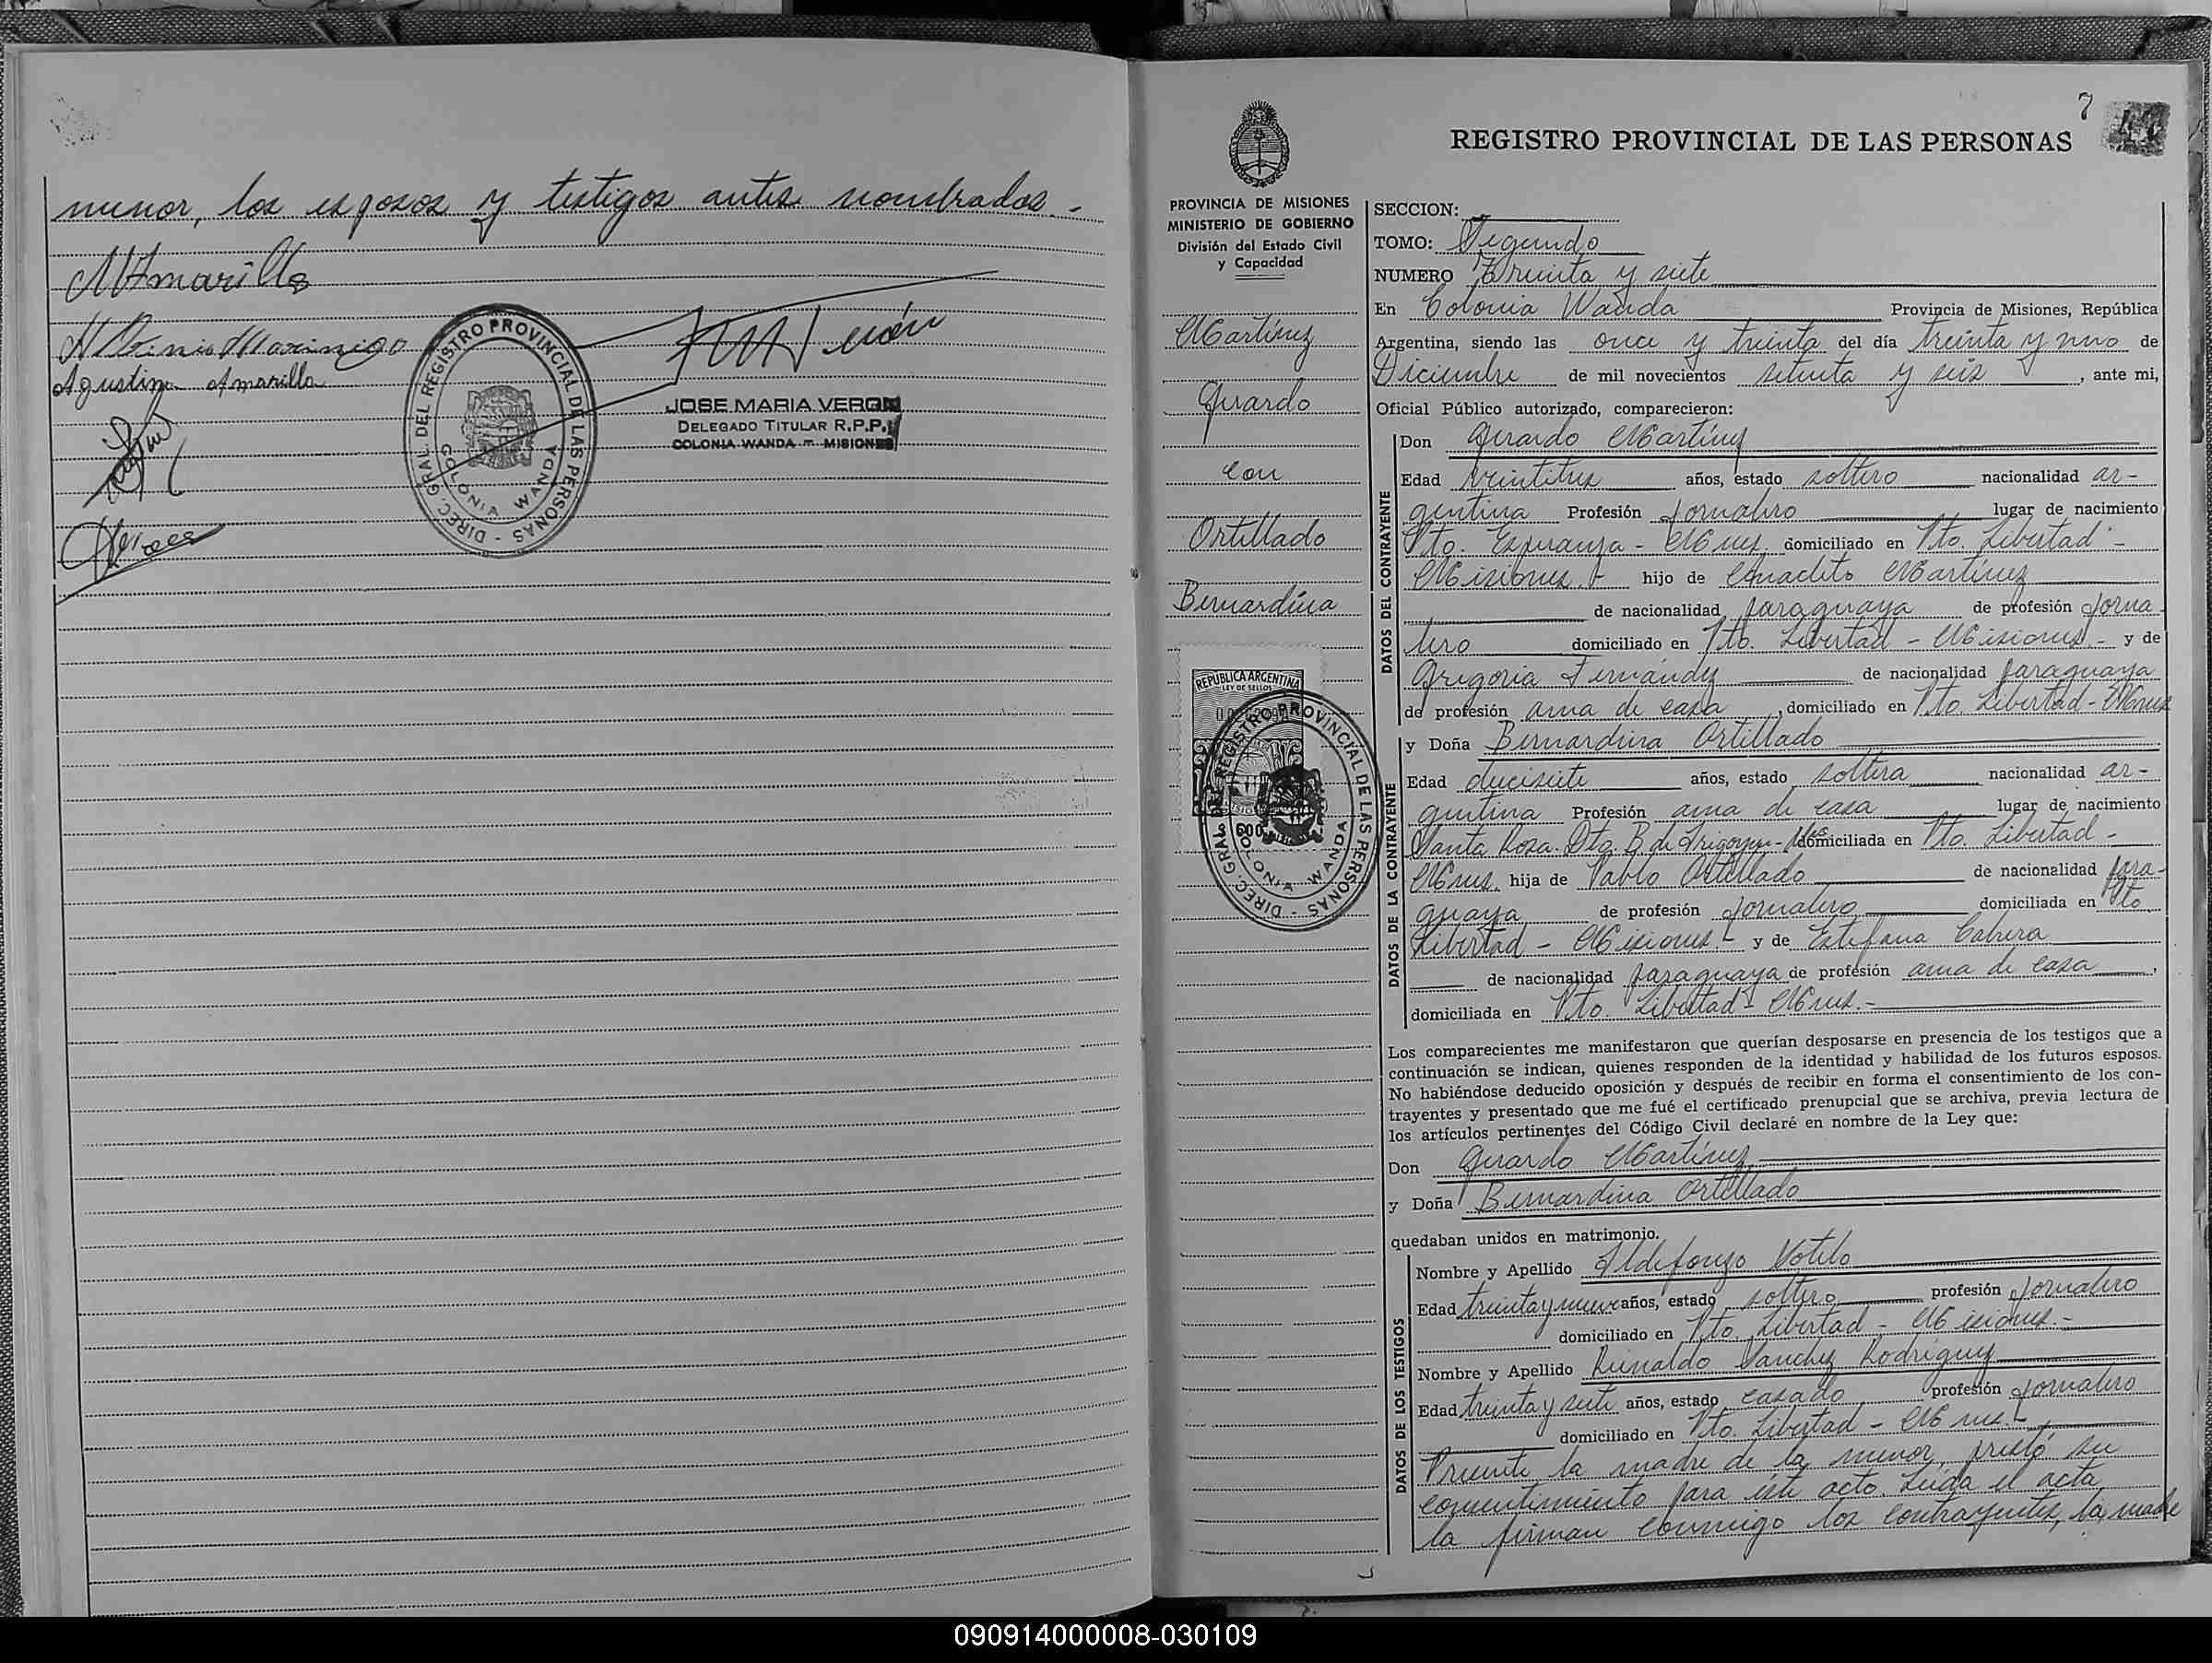 menor, los esposos y testigos antes nombrados.-
Amarilla
Albina Marinigo
Agustina Amarilla
DIREC. GRAL. DEL REGISTRO PROVINCIAL DE LAS PERSONAS -
COLONIA WANDA
JOSE MARIA VERON
DELEGADO TITULAR R.P.P.
COLONIA WANDA - MISIONES
7
REGISTRO PROVINCIAL DE LAS PERSONAS
PROVINCIA DE MISIONES
MINISTERIO DE GOBIERNO
División del Estado Civil
y Capacidad
Martínez
Gerardo
con
Ortellado
Bernardina
REPUBLICA ARGENTINA
LEY DE SELLOS
DIREC. GRAL. DEL REGISTRO PROVINCIAL DE LAS PERSONAS -
COLONIA WANDA
SECCION:
TOMO: Segundo
NUMERO Treinta y siete
En Colonia Wanda Provincia de Misiones, República
Argentina, siendo las once y treinta del día treinta y uno de
Diciembre de mil novecientos setenta y seis, ante mi,
Oficial Público autorizado, comparecieron:
DATOS DEL CONTRAYENTE
Don Gerardo Martínez
Edad veintitres años, estado soltero nacionalidad ar-
gentina Profesión Jornalero lugar de nacimiento
Pto. Esperanza - Mnes, domiciliado en Pto. Libertad -
Misiones.- hijo de Anacleto Martínez
de nacionalidad paraguaya de profesión Jorna-
lero domiciliado en Pto. Libertad - Misiones.- y de
Gregoria Fernández de nacionalidad paraguaya
de profesión ama de casa, domiciliado en Pto. Libertad - Mnes
DATOS DE LA CONTRAYENTE
y Doña Bernardina Ortellado
Edad diecisiete años, estado soltera nacionalidad ar-
gentina Profesión ama de casa lugar de nacimiento
Santa Rosa. Dto. B. de Irigoyen - Mnes domiciliada en Pto. Libertad -
Mnes. hija de Pablo Ortellado de nacionalidad para-
guaya de profesión Jornalero domiciliada en Pto.
Libertad - Misiones.- y de Estefana Cabrera
de nacionalidad paraguaya de profesión ama de casa,
domiciliada en Pto. Libertad - Mnes.-
Los comparecientes me manifestaron que querían desposarse en presencia de los testigos que a
continuación se indican, quienes responden de la identidad y habilidad de los futuros esposos.
No habiéndose deducido oposición y después de recibir en forma el consentimiento de los con-
trayentes y presentado que me fué el certificado prenupcial que se archiva, previa lectura de
los artículos pertinentes del Código Civil declaré en nombre de la Ley que:
Don Gerardo Martínez
y Doña Bernardina Ortellado
quedaban unidos en matrimonio.
DATOS DE LOS TESTIGOS
Nombre y Apellido Ildefonzo Sotelo
Edad treinta y nueve años, estado soltero profesión Jornalero
domiciliado en Pto. Libertad - Misiones.-
Nombre y Apellido Reinaldo Sanchez Rodriguez
Edad treinta y siete años, estado casado profesión Jornalero
domiciliado en Pto. Libertad - Mnes.-
Presente la madre de la menor, prestó su
consentimiento para éste acto. Leída el acta,
la firman conmigo los contrayentes, la madre
090914000008-030109